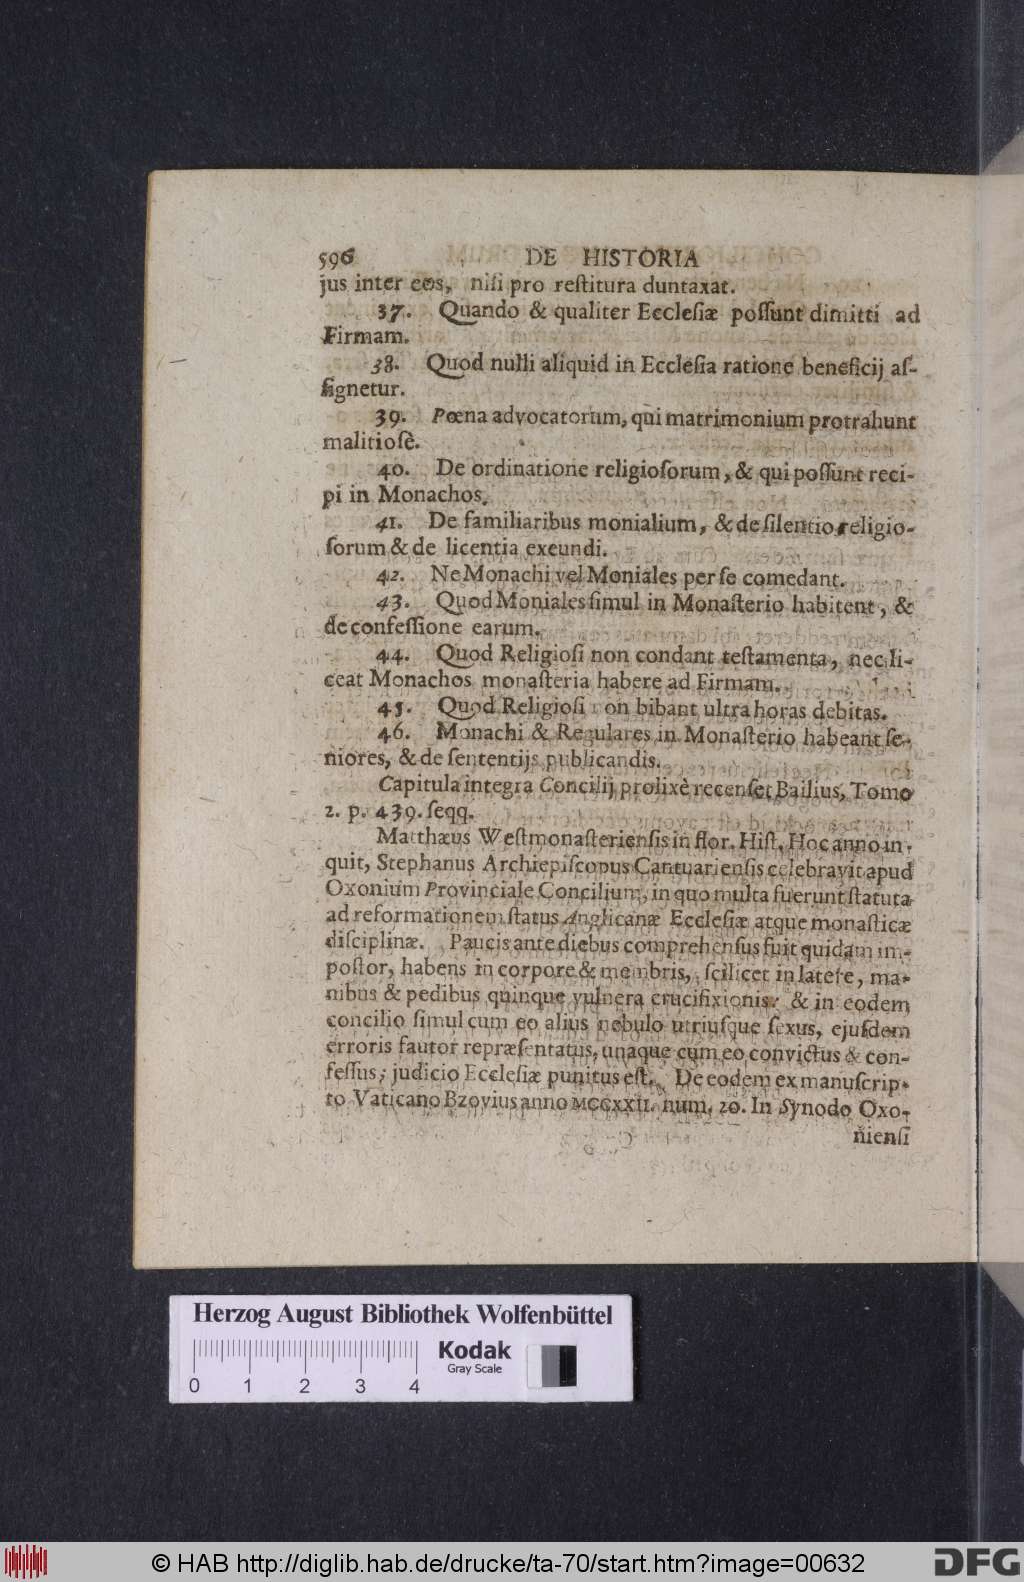 596 DE HISTORIA
jus inter eos, nisi pro restitura duntaxat.
37. Quando & qualiter Ecclesiæ possunt dimitti ad
Firmam.
38. Quod nulli aliquid in Ecclesia ratione beneficij as-
signetur.
39. Pœna advocatorum, qui matrimonium protrahunt
malitiosè.
40. De ordinatione religiosorum, & qui possunt reci-
pi in Monachos.
41. De familiaribus monialium, & de silentio religio-
sorum & de licentia exeundi.
42. Ne Monachi vel Moniales per se comedant.
43. Quod Moniales simul in Monasterio habitent, &
de confessione earum.
44. Quod Religiosi non condant testamenta, nec li-
ceat Monachos monasteria habere ad Firmam.
45. Quod Religiosi non bibant ultra horas debitas.
46. Monachi & Regulares in Monasterio habeant se-
niores, & de sententijs publicandis.
Capitula integra Concilij prolixè recenset Bailius, Tomo
2. p. 439. seqq.
Matthæus Westmonasteriensis in flor. Hist. Hoc anno in-
quit, Stephanus Archiepiscopus Cantuariensis celebravit apud
Oxonium Provinciale Concilium, in quo multa fuerunt statuta
ad reformationem status Anglicanæ Ecclesiæ atque monasticæ
disciplinæ. Paucis ante diebus comprehensus fuit quidam im-
postor, habens in corpore & membris, scilicet in latere, ma-
nibus & pedibus quinque vulnera crucifixionis: & in eodem
concilio simul cum eo alius nebulo utriusque sexus, ejusdem
erroris fautor repræsentatus, unaque cum eo convictus & con-
fessus, judicio Ecclesiæ punitus est. De eodem ex manuscrip-
to Vaticano Bzovius anno MCCXXII. num. 20. In Synodo Oxo-
niensi
Herzog August Bibliothek Wolfenbüttel
Kodak
Gray Scale
0 1 2 3 4
© HAB http://diglib.hab.de/drucke/ta-70/start.htm?image=00632
DFG